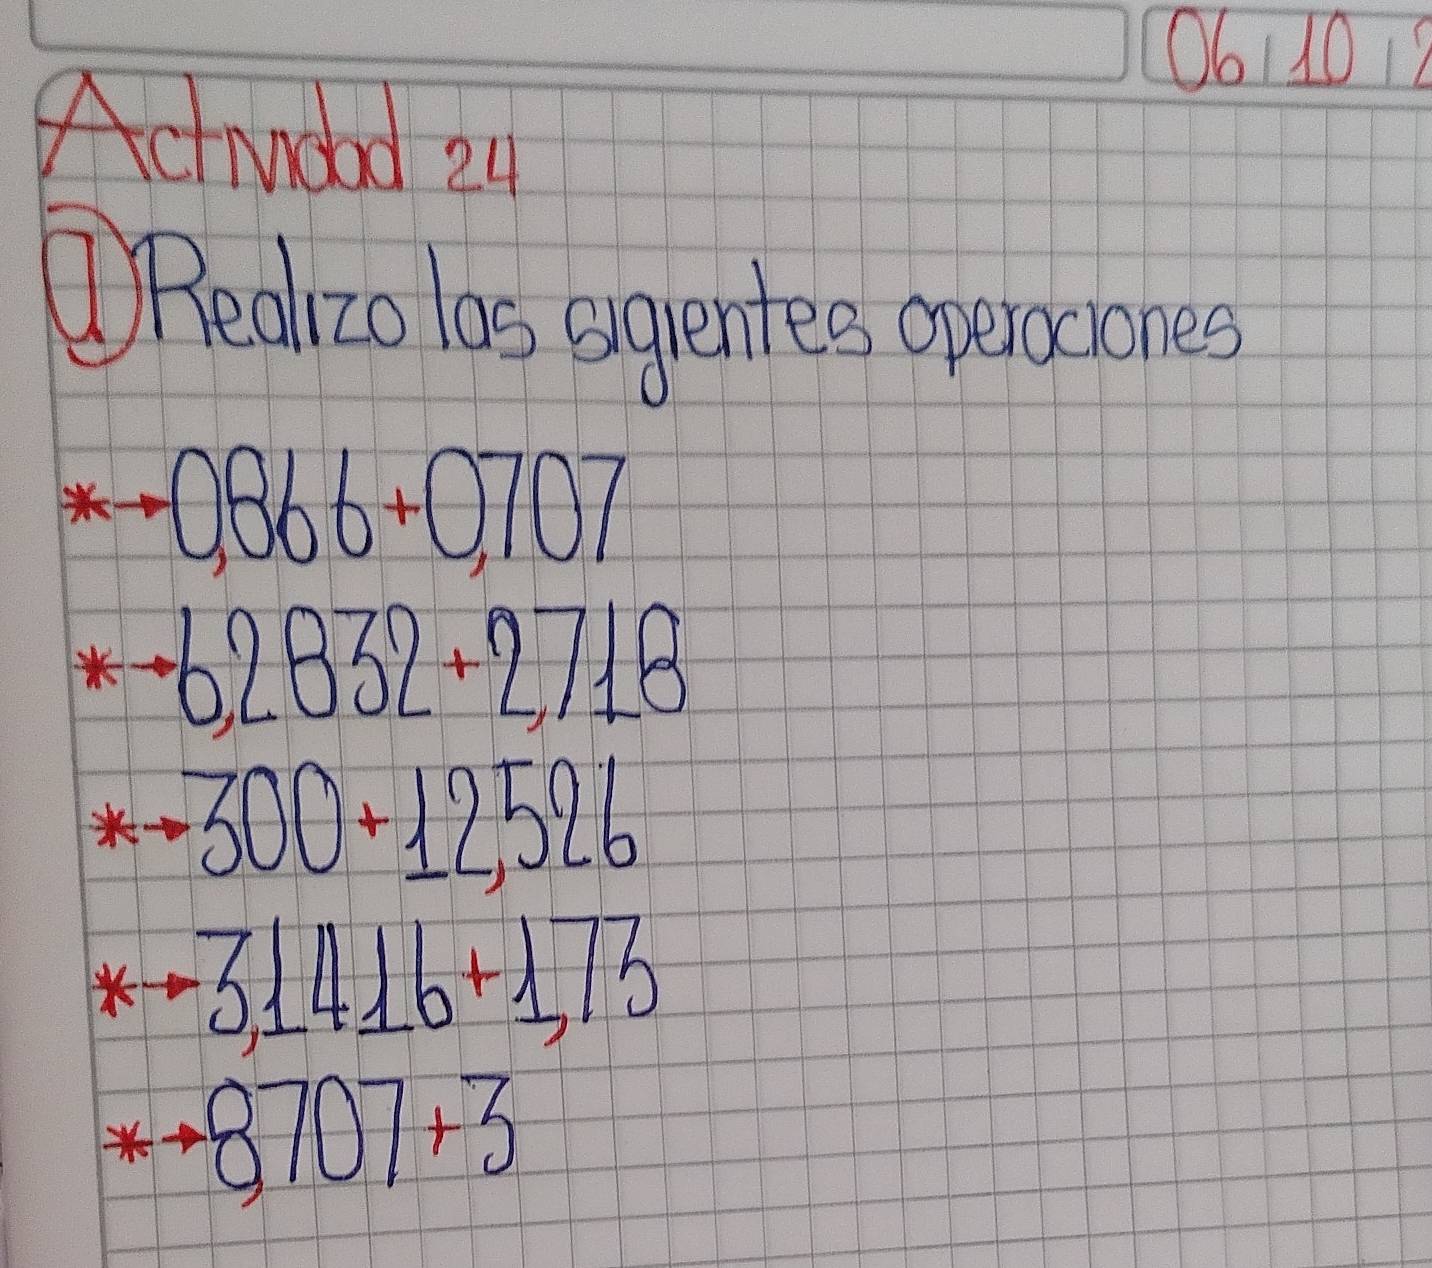 06 10 2
Actividad 24
① Realizo las sigientes operaciones
*→0,866+0,707
*→6,2832+2,718
*→300+12,526
*→3,1416+1,73
*→8,707+3